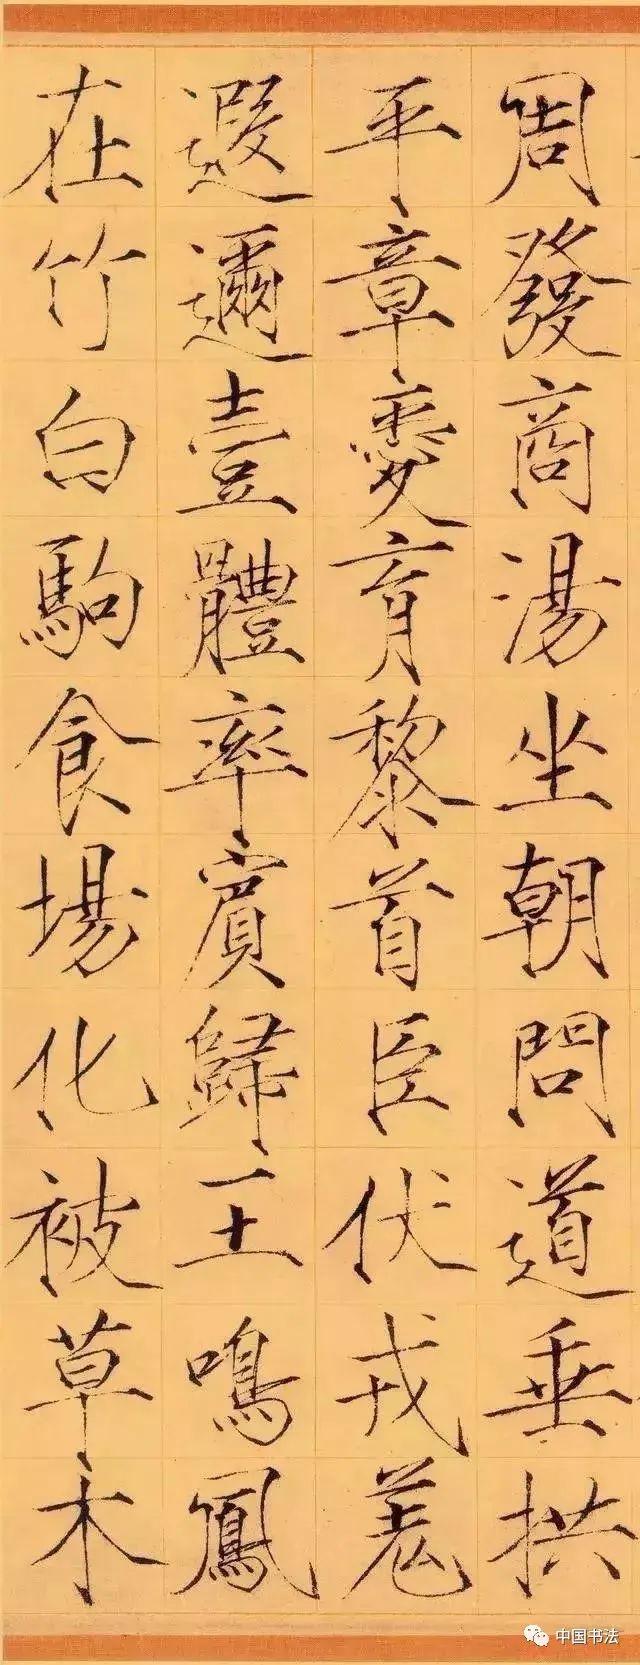 周發商湯坐朝問道垂拱
平章愛育黎首臣伏戎羌
遐邇壹體率賓歸王鳴鳳
在竹白駒食場化被草木
中国书法